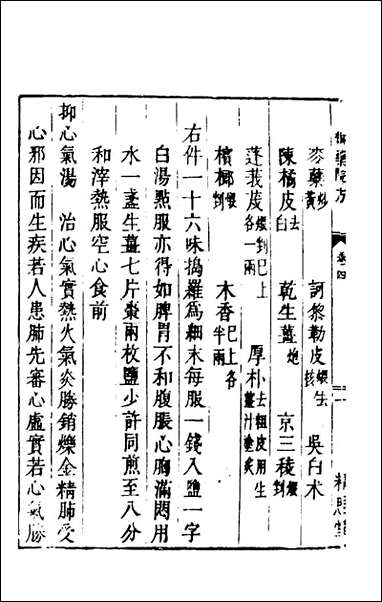 御藥院方 卷四
麥蘗炒黃 訶黎勒皮煨去核 吳白术
陳橘皮去白 乾生薑炮 京三稜煨剉
蓬莪茂煨剉已上各一兩 厚朴去粗皮用生薑汁塗炙
檳榔煨剉 木香已上各半兩
右件一十六味搗羅爲細末每服一錢入鹽一字
白湯點服亦得如脾胃不和腹脹心胸滿悶用
水一盞生薑七片棗兩枚鹽少許同煎至八分
和滓熱服空心食前
抑心氣湯 治心氣實熱火氣炎勝銷爍金精肺受
心邪因而生疾若人患肺先審心虛實若心氣勝